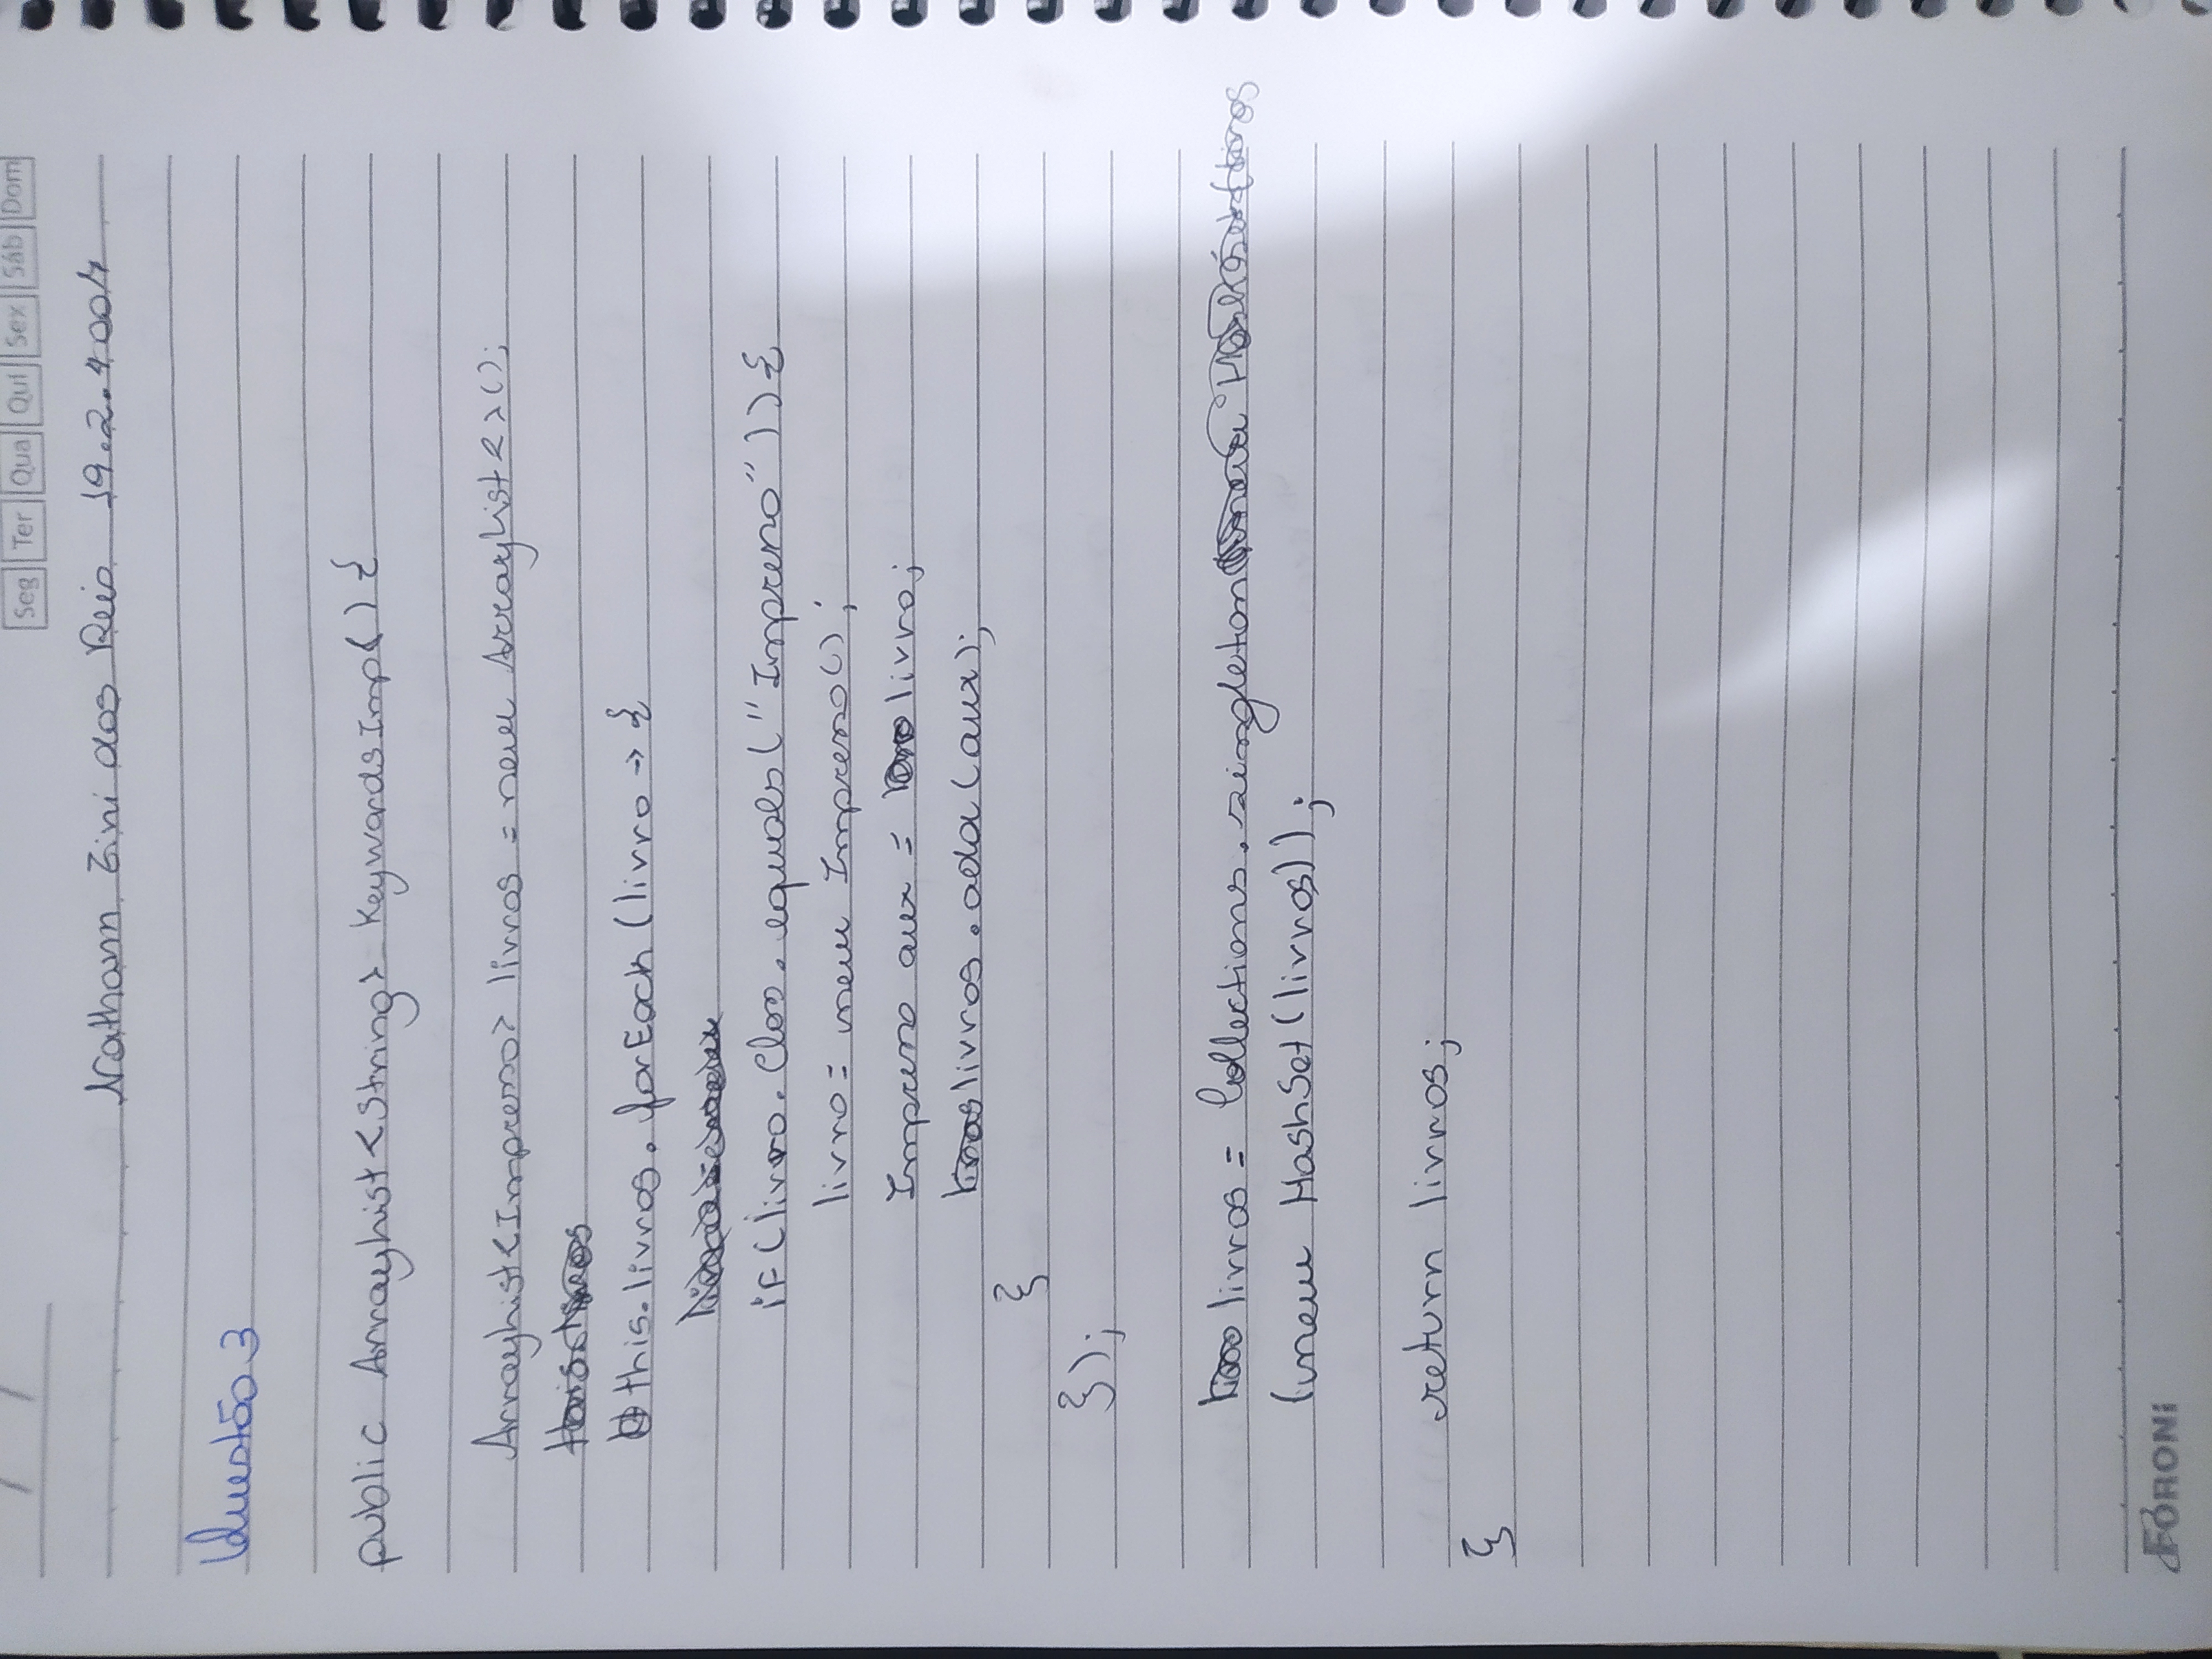 Seg Ter Qua Qui Sex Sáb Dom
Nathann Zini dos Reis 19.2.4007
Questão 3
public ArrayList<String> KeywordsImp() {
ArrayList<Impresso> livros = new ArrayList<>();
this.livros.forEach(livro -> {
if(livro.Class.equals("Impresso")){
livro = new Impresso();
Impresso aux = livro;
livros.add(aux);
}
});
livros = Collections.singleton
(new HashSet(livros));
return livros;
}
FORONI